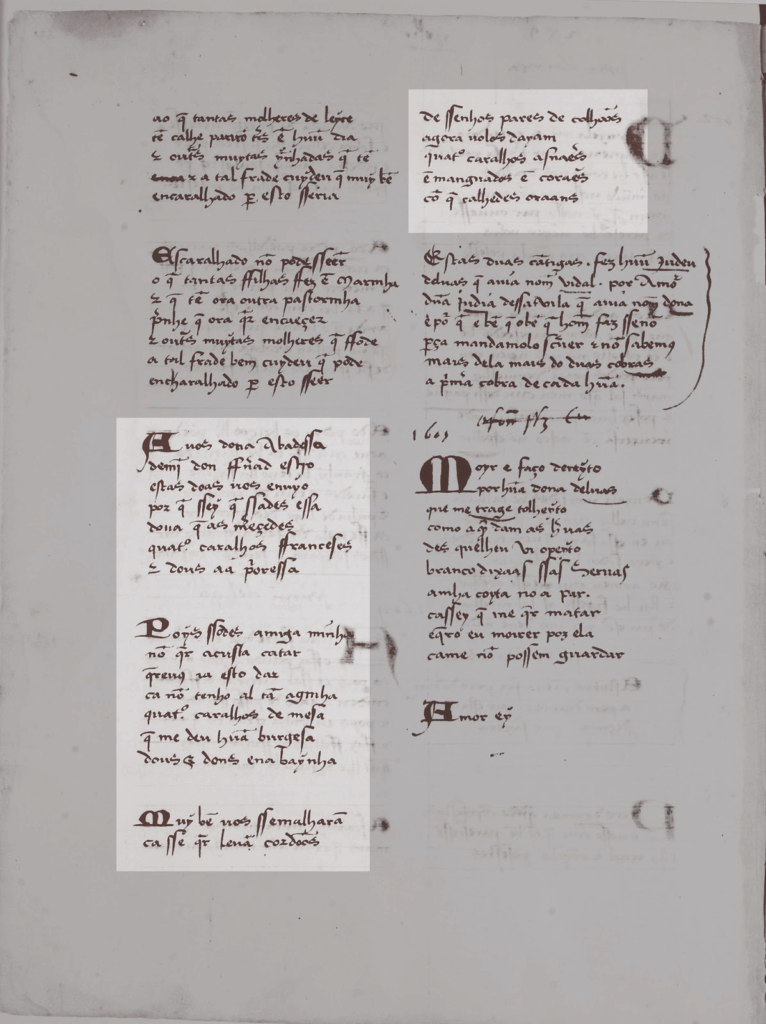 ao q̃ tantas molheres de leyte
tẽ calhe parirõ tr̃s ẽ hũu dia
⁊ outr̃s muytas p̃nhadas q̃ tẽ
⁊ a tal frade cuydeu q̃ muy bẽ
encaralhado p̲ esto sseria
Escaralhado nõ pode sseer
o q̃ tantas ffilhas ffez ẽ Marinha
⁊ q̃ tẽ ora outra pastorinha
p̃nhe q̃ ora q̃r encaeçer
⁊ outr̃s muytas molheres q̃ ffode
a tal frade bem cuydeu q̃ pode
encharalhado p̲ esto sseer
A uos dona Abadessa
demj̃ don ffr̃nad esq̃o
estas doas uos enuyo
por q̃ ssey q̃ ssades essa
dona q̃ as m̃eçedes
quat.º caralhos ffranceses
⁊ dous aa p̃oressa
Poys ssodes amiga minha
nõ q̃r acusta catar
q̃reuꝯ ia esto dar
ca nõ tenho al tã agĩha
quat.º caralhos de mesa
q̃ me deu hũa burgesa
dous ⁊ dous ena baỹnha
Muy bẽ uos ssemalharã
ca sse q̃r leuã cordoões
de ssenhos pares de colhoões
agora uolos dayam
quat.º caralhos asnaẽs
ẽmanguados ẽ coraẽs
cõ q̃ calhedes oraans
Estas duas cãtigas. fez hũu Judeu
deluas q̃ auia nom̃ Vidal. por Amor̃
dũa Judia dessa vila q̃ auia nom̃ dona
⁊ p̃o q̃ ẽ bẽ q̃ obẽ q̃ homẽ faz sseñõ
p̲ça mandamolo sc̃uer ⁊ nõ sabemꝯ
mais dela mais do duas cobras
a p̃m̃a cobra de cada hũa.
1605
Moyr e faço dereyto
por hũa dona deluas
que me trage tolheito
como a q̃ dam as h̃uas
des quelheu vi o peyto
branco dixaas ssas seruas
amha coyta no a par.
cassey q̃ me q̃r matar
e q̃ro eu morrer poz ela
came nõ possem guardar
Amor ey